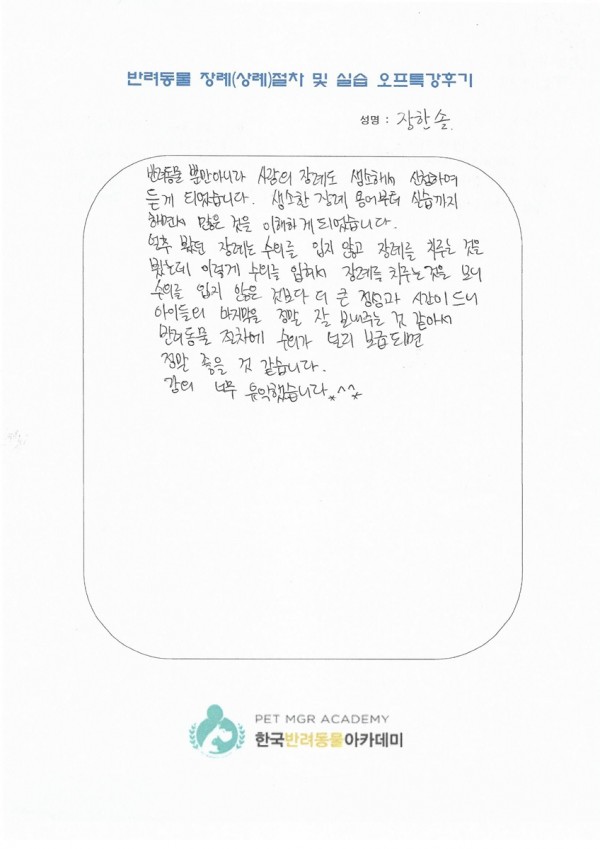 반려동물 장례(상례)절차 및 실습 오프특강후기
성명 : 장한솔.
반려동물 뿐만아니라 사람의 장례도 생소해서 신청하여
듣게 되었습니다. 생소한 장례 용어부터 실습까지
하면서 많은 것을 이해하게 되었습니다.
봤던 장례는 수의를 입지 않고 장례를 치루는 것을
봤는데 이렇게 수의를 입혀서 장례를 치루는것을 보니
수의를 입지 않은 것보다 더 큰 정성과 시간이 드니
아이들의 마지막을 정말 잘 보내주는 것 같아서
반려동물 절차에 수의가 널리 보급되면
정말 좋을 것 같습니다.
강의 너무 유익했습니다*^^*
PET MGR ACADEMY
한국반려동물아카데미